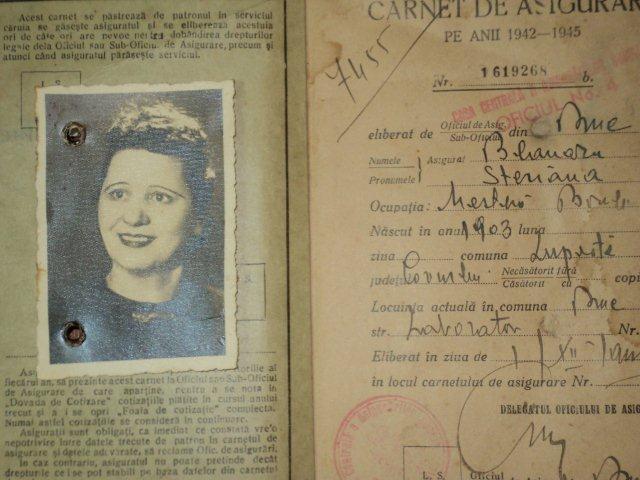 Acest carnet se păstrează de patronul în serviciul
căruia se găsește asiguratul și se eliberează acestuia
ori de câte ori are nevoe pentru dobândirea drepturilor
legale dela Oficiul sau Sub-Oficiul de Asigurare, precum și
atunci când asiguratul părăsește serviciul.
L. S.
fiecărui an, să prezinte acest carnet la Oficiul sau Sub-Oficiul
de Asigurare de care aparține, pentru a se nota în
„Dovada de Cotizare" cotizațiile plătite în cursul anului
trecut și a i se opri „Foaia de cotizație" complectă.
Numai astfel cotizațiile se consideră în continuare.
Asigurații sunt obligați, ca imediat ce constată vre'o
nepotrivire între datele trecute de patron în carnetul de
asigurare și datele adevărate, să reclame Ofic. de asigurări.
În caz contrariu, asiguratul nu poate pretinde decât
drepturile ce i se pot stabili pe baza datelor din carnetul
CARNET DE ASIGURAR
PE ANII 1942—1945
7455
Nr. 1619268 b.
CASA CENTRALA
OFICIUL No. 4
eliberat de Oficiul de Asig. Sub-Oficiul din Buc
Numele Pronumele Asigurat
Steriana
Ocupația:
Născut în anul 1903 luna
ziua comuna
județul Necăsătorit fără Căsătorit cu copii
Locuința actuală în comuna Buc
str. Laborator Nr.
Eliberat în ziua de 1/XII
în locul carnetului de asigurare Nr.
DELEGATUL OFICIULUI DE ASIG
L. S. Oficiul